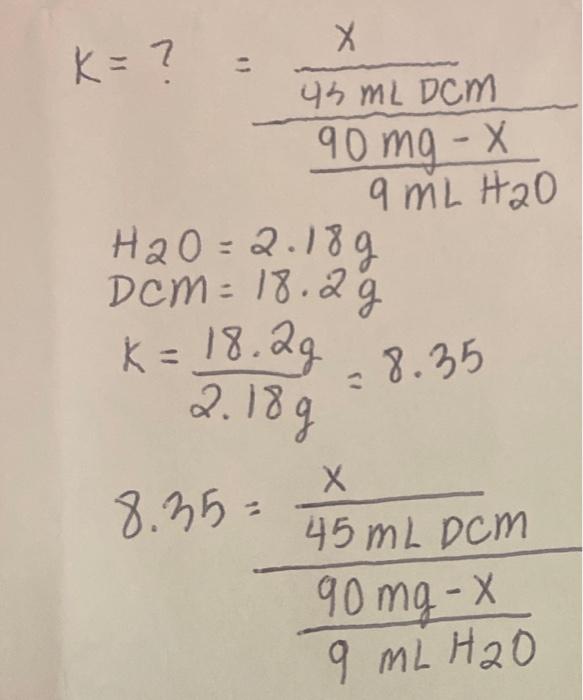 K = ? = x
45 mL DCM
90 mg - x
9 mL H2O
H2O = 2.18g
DCM = 18.2g
K = 18.2g = 8.35
2.18g
8.35 = x
45 mL DCM
90 mg - x
9 mL H2O